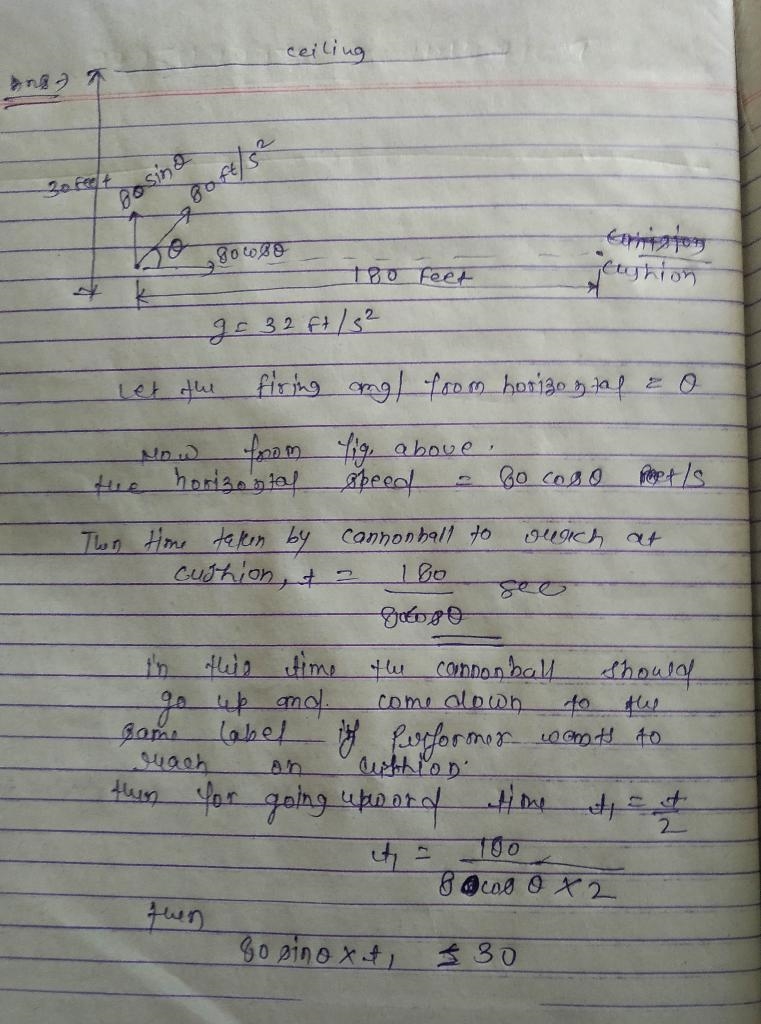 ceiling
Ans→
30 feet
80 sinθ
80 ft/s²
θ
80 cosθ
180 feet
cushion
g = 32 ft/s²
Let the firing angl from horizontal = θ
Now from fig. above.
the horizontal speed = 80 cosθ feet/s
Then time taken by cannonball to reach at
cushion, t = 180 / 80cosθ sec
in this time the cannonball should
go up and come down to the
same label if performer wants to
reach on cushion.
then for going upword time t₁ = t/2
t₁ = 180 / 80cosθ × 2
then
80 sinθ × t₁ ≤ 30